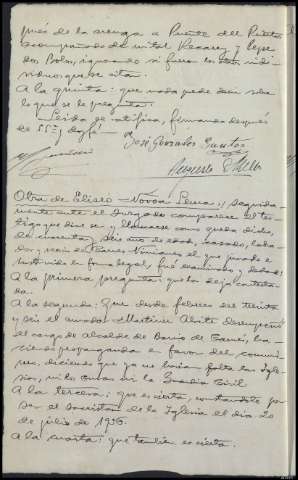 pués de la arenga a Puente del Puerto
acompañado de Vital Recarey y Pepe
dos Bolos, ignorando si fueron los otros indi-
viduos que se citan.
A la quinta: que nada puede decir sobre
lo que se le pregunta.
Leida se ratifica, firmando después
de SSª y doy fé =
José Gonzalez Santos
Otra de Eliseo Novoa = Seguida-
mente ante el Juzgado comparece el tes-
tigo que dice ser y llamarse como queda dicho,
de cuarenta y seis años de edad, casado, labra-
dor y vecino de el que jurado e
instruido en forma legal, fué examinado y declaró:
A la primera pregunta: queda ya contesta-
da.
A la segunda: Que desde febrero del treinta
y seis el acusado Martinez Alvite desempeñó
el cargo de Alcalde de Barrio de ha-
ciendo propaganda en favor del comunis-
mo, diciendo que ya no hacían falta las Igle-
sias, ni los curas ni la Guardia Civil
A la tercera; que es cierta, contandole por
ser el sacristán de la Iglesia el dia 20
de julio de 1936.
A la cuarta; que tambien es cierta.